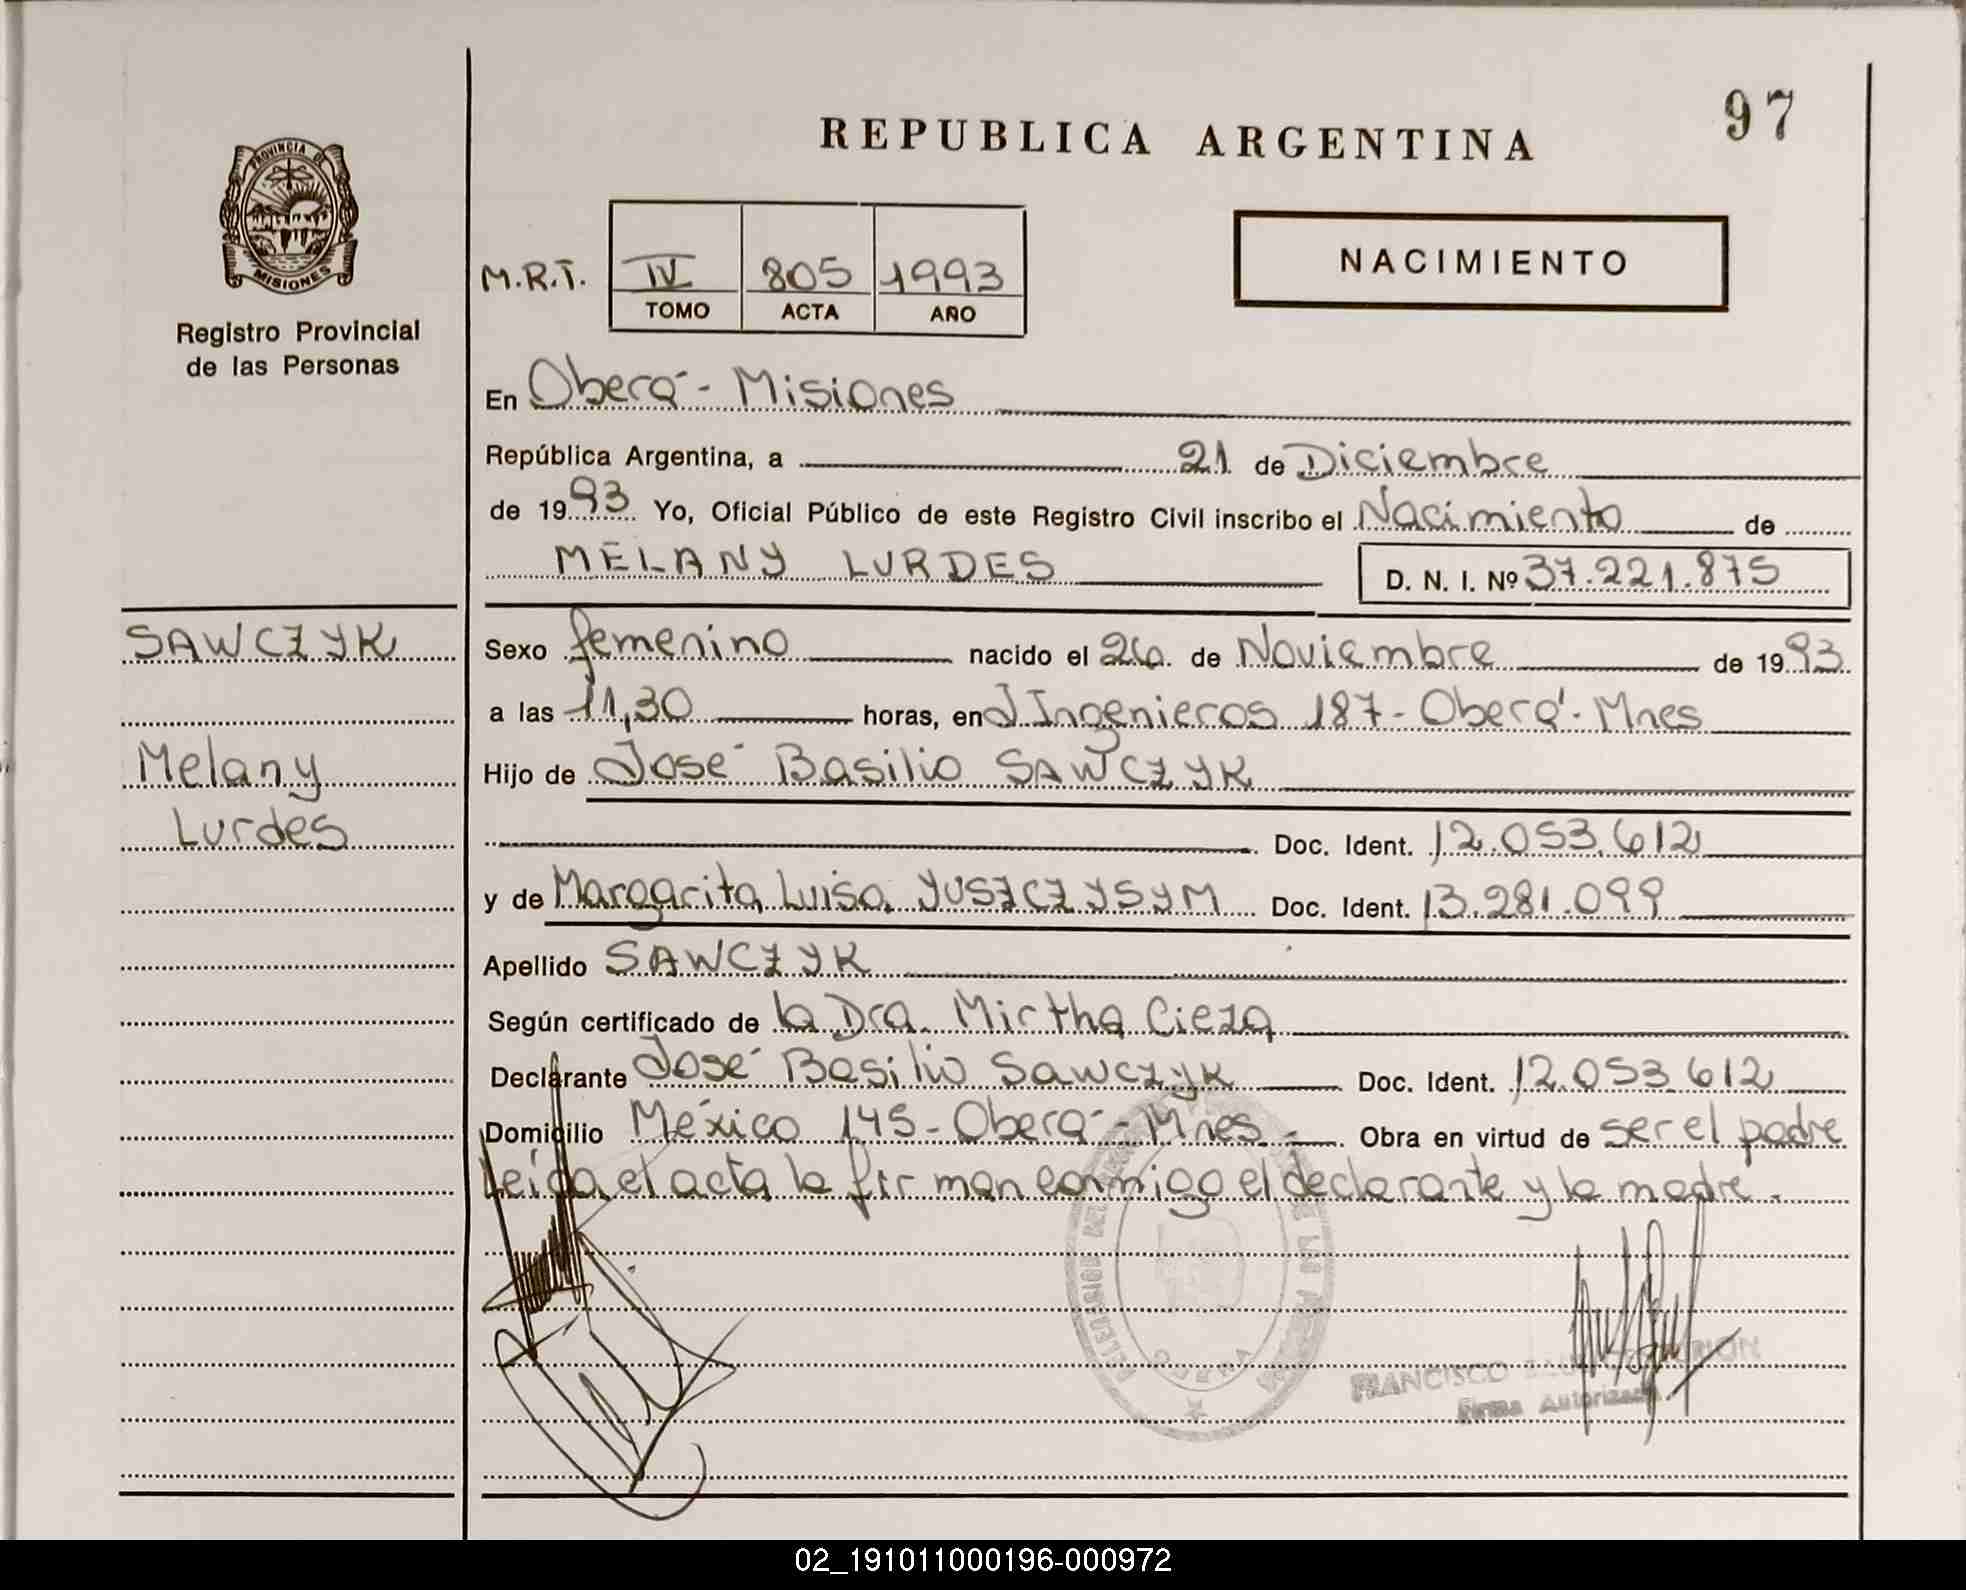 97
REPUBLICA ARGENTINA
PROVINCIA DE
MISIONES
Registro Provincial
de las Personas
NACIMIENTO
M.R.T. IV 805 1993
TOMO ACTA AÑO
En Oberá - Misiones
República Argentina, a 21 de Diciembre
de 1993 Yo, Oficial Público de este Registro Civil inscribo el Nacimiento de
MELANY LURDES D. N. I. Nº 37.221.875
SAWCZYK
Melany
Lurdes
Sexo femenino nacido el 26 de Noviembre de 1993
a las 11,30 horas, en J Ingenieros 187 - Oberá - Mnes
Hijo de José Basilio SAWCZYK
Doc. Ident. 12.053.612
y de Margarita Luisa YUSZCZYSYM Doc. Ident. 13.281.099
Apellido SAWCZYK
Según certificado de la Dra. Mirtha Cieza
Declarante José Basilio Sawczyk Doc. Ident. 12.053.612
Domicilio México 145 - Oberá - Mnes - Obra en virtud de ser el padre
Leída el acta la firman conmigo el declarante y la madre.
FRANCISCO
Firma Autorizada
02_191011000196-000972